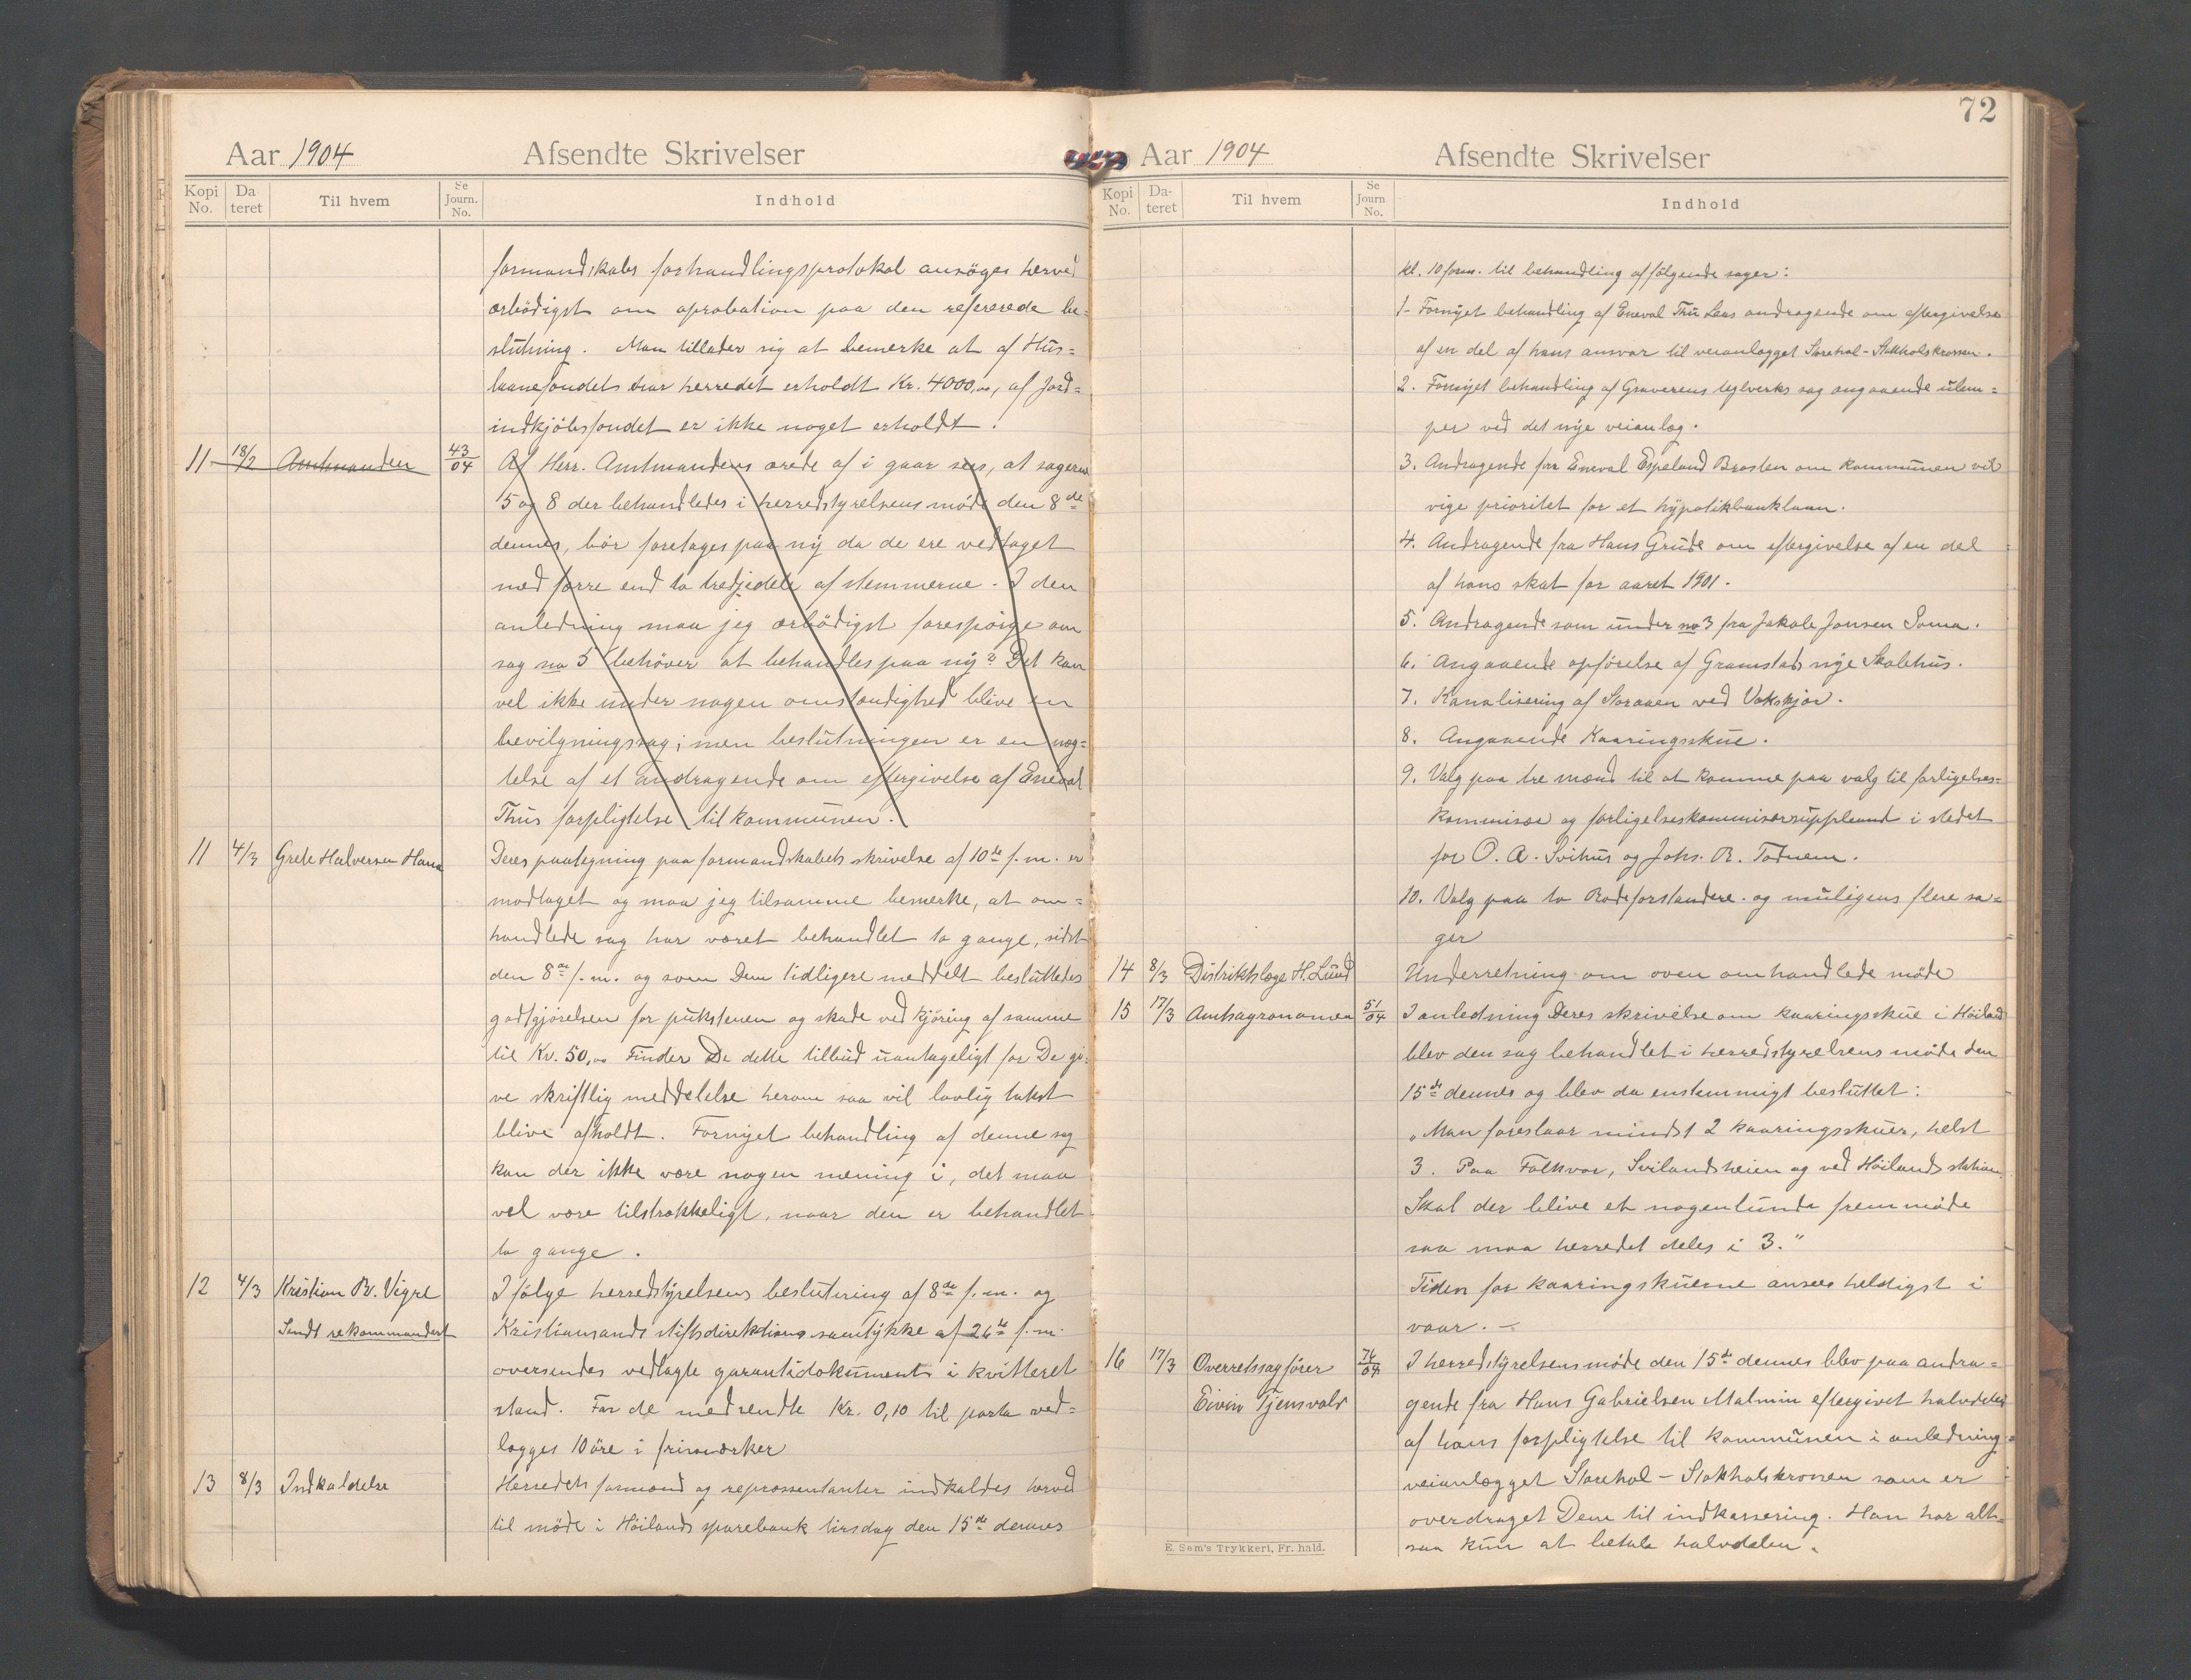 Aar 1904 Afsendte Skrivelser
Kopi No. Da teret Til hvem Se Journ. No. Indhold
formandskabs forhandlingsprotokol ansöges herved
ærbödigst om aprobation paa den refererede be-
slutning. Man tillader sig at bemerke at af Hus-
laanefondet har herredet erholdt Kr. 4000,00, af Jord-
indkjöbsfondet er ikke noget erholdt!
11 18/2 Amtmanden 43/04 Af Herr. Amtmandens ærede af i gaar sees, at sagerne
5 og 8 der behandledes i herredstyrelsens möde den 8de
dennes, bör foretages paa ny da de ere vedtaget
med færre end to tredjedele af stemmerne. I den
anledning maa jeg ærbödigst forespörge om
sag no 5 behöver at behandles paa ny? Det kan
vel ikke under nogen omstændighed blive en
bevilgningssag; men beslutningen er en næg-
telse af et andragende om eftergivelse af Eneval
Thus forpligtelse til kommunen.
11 4/3 Grete Halversen Hana Deres paategning paa formandskabets skrivelse af 10de f.m. er
modtaget og maa jeg tilsamme bemerke, at om-
handlede sag har været behandlet to gange, sidst
den 8de f.m. og som Dem tidligere meddelt besluttedes
godtgjörelsen for pukstenen og skade ved kjöring af samme
til Kr. 50,00 Finder De dette tilbud uantageligt for De gi-
ve skriftlig meddelelse herom saa vil lovlig takst
blive afholdt. Fornyet behandling af denne sag
kan der ikke være nogen mening i, det maa
vel være tilstrækkeligt, naar den er behandlet
to gange.
12 4/3 Kristian B. Vigre I fölge herredstyrelsens beslutning af 8de f.m. og
Sendt rekommandert Kristiansands stiftsdirektions samtykke af 26de f.m.
oversendes vedlagte garantidokument i kvitteret
stand. For de medsendte Kr. 0,10 til porto ved-
lægges 10 öre i frimærker
13 8/3 Indkaldelse Herredets formænd og repræsentanter indkaldes herved
til möde i Höilands sparebank tirsdag den 15de dennes
72
Aar 1904 Afsendte Skrivelser
Kopi No. Da- teret Til hvem Se Journ No. Indhold
kl. 10 form. til behandling af fölgende sager:
1- Fornyet behandling af Eneval Thu Laas andragende om eftergivelse
af en del af hans ansvar til veianlægget Storehol-Stokholskrossen.
2. Fornyet behandling af Graverens teglverks sag angaaende ulem-
per ved det nye veianlæg.
3. Andragende fra Eneval Espeland Brosten om kommunen vil
vige prioritet for et hypotekbanklaan.
4. Andragende fra Hans Grude om eftergivelse af en del
af hans skat for aaret 1901.
5. Andragende som under no 3 fra Jakob Jonsen Soma.
6. Angaaende opförelse af Gramstads nye Skolehus.
7. Kanalisering af Storaaen ved Vakskjær.
8. Angaaende Kaaringsskue.
9. Valg paa tre mænd til at komme paa valg til forligelses-
kommisær og forligelseskommisærsuppleand i stedet
for O. A. Svihus og Johs. R. Todnem.
10. Valg paa to Rodeforstandere. og muligens flere sa-
ger
14 8/3 Distriktslæge H. Lund Underretning om oven omhandlede möde
15 17/3 Amtsagronomen 51/04 I anledning Deres skrivelse om kaaringsskue i Höiland
blev den sag behandlet i herredstyrelsens möde den
15de dennes og blev da enstemmigt besluttet:
„Man foreslaar mindst 2 kaaringsskuer, helst
3. Paa Folkvor, Svilandsheien og ved Höilands station
Skal der blive et nogenlunde fremmöde
saa maa herredet deles i 3."
Tiden for kaaringskuerne ansees heldigst i
vaar. –
16 17/3 Overretssagförer 76/04 I herredstyrelsens möde den 15de dennes blev paa andra-
Eivin Tjensvold gende fra Hans Gabrielsen Malmin eftergivet halvdelen
af hans forpligtelse til kommunen i anledning
veianlægget Storehol-Stokholskrossen som er
overdraget Dem til indkassering. Han har alt-
saa kun at betale halvdelen.
E. Sem's Trykkeri, Fr. hald.